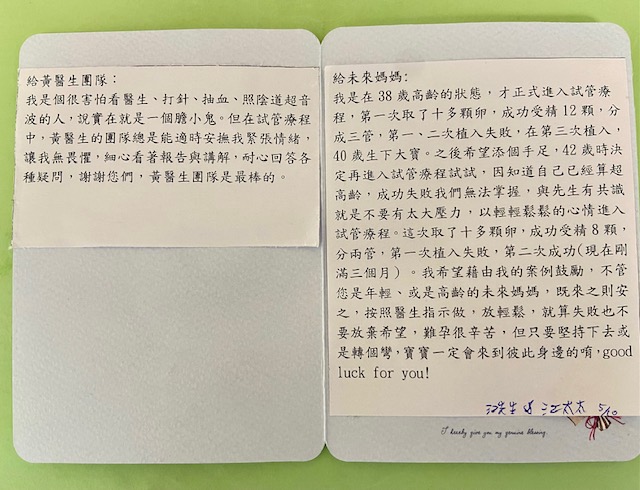 給黃醫生團隊：
我是個很害怕看醫生、打針、抽血、照陰道超音
波的人，說實在就是一個膽小鬼。但在試管療程
中，黃醫生的團隊總是能適時安撫我緊張情緒，
讓我無畏懼，細心看著報告與講解，耐心回答各
種疑問，謝謝您們，黃醫生團隊是最棒的。
給未來媽媽:
我是在 38 歲高齡的狀態，才正式進入試管療
程，第一次取了十多顆卵，成功受精 12 顆，分
成三管，第一、二次植入失敗，在第三次植入，
40 歲生下大寶。之後希望添個手足，42 歲時決
定再進入試管療程試試，因知道自己已經算超
高齡，成功失敗我們無法掌握，與先生有共識
就是不要有太大壓力，以輕輕鬆鬆的心情進入
試管療程。這次取了十多顆卵，成功受精 8 顆，
分兩管，第一次植入失敗，第二次成功(現在剛
滿三個月) 。我希望藉由我的案例鼓勵，不管
您是年輕、或是高齡的未來媽媽，既來之則安
之，按照醫生指示做，放輕鬆，就算失敗也不
要放棄希望，難孕很辛苦，但只要堅持下去或
是轉個彎，寶寶一定會來到彼此身邊的唷，good
luck for you!
江先生 & 江太太 5/10
I hereby give you my genuine blessing.